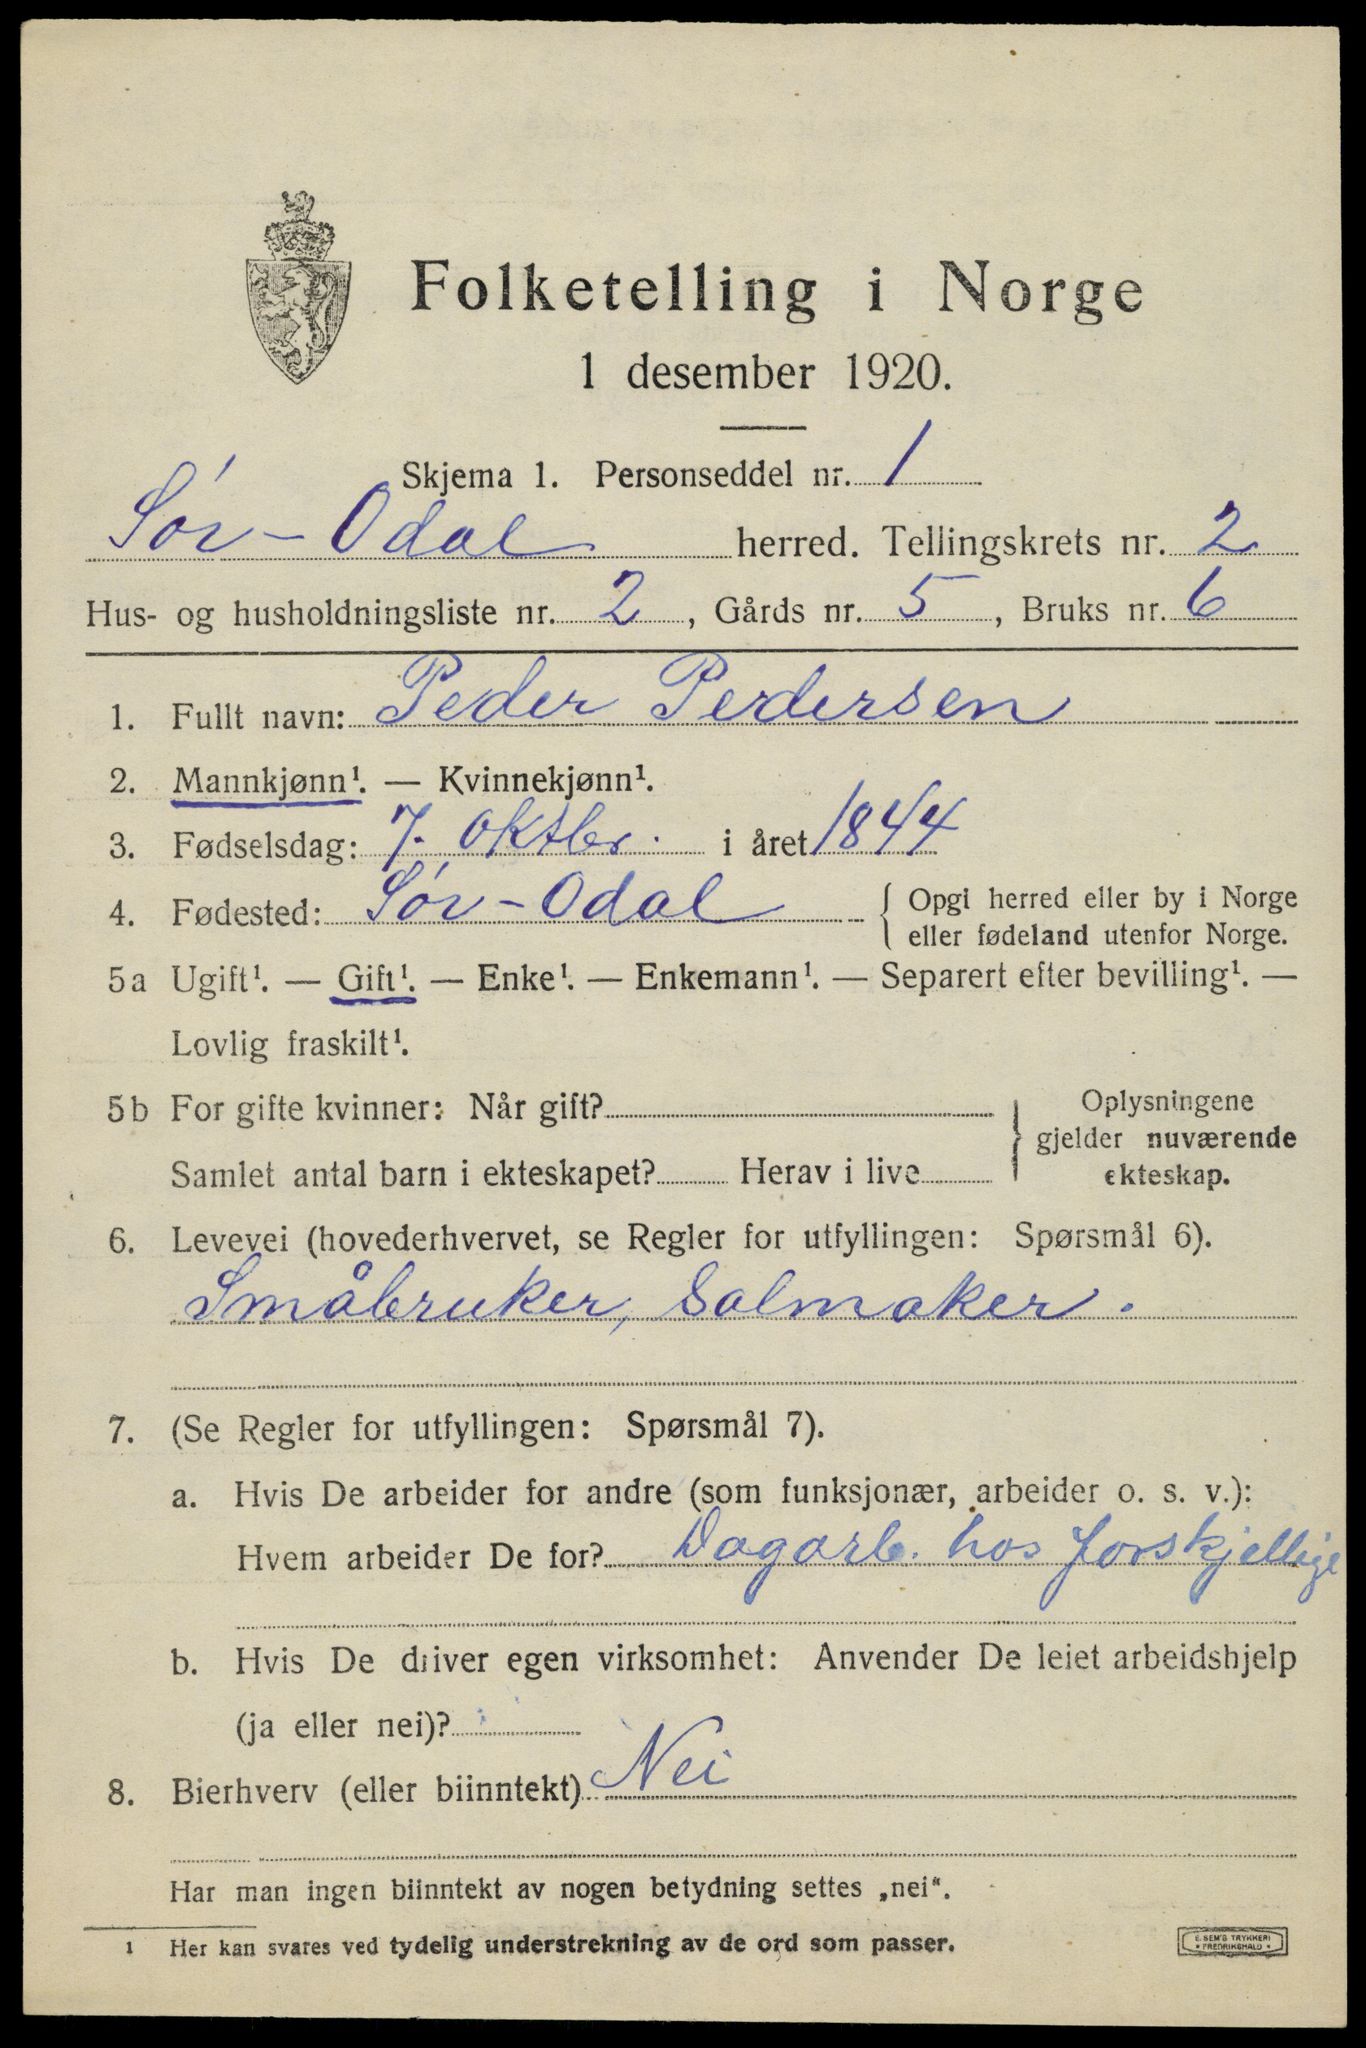 Folketelling i Norge
1 desember 1920.
Skjema 1. Personseddel nr. 1
Sør-Odal herred. Tellingskrets nr. 2
Hus- og husholdningsliste nr. 2, Gårds nr. 5, Bruks nr. 6
1. Fullt navn: Peder Pedersen
2. Mannkjønn¹. — Kvinnekjønn¹.
3. Fødselsdag: 7. oktbr. i året 1844
4. Fødested: Sør-Odal { Opgi herred eller by i Norge
eller fødeland utenfor Norge.
5a Ugift¹. — Gift¹. — Enke¹. — Enkemann¹. — Separert efter bevilling¹. —
Lovlig fraskilt¹.
5b For gifte kvinner: Når gift? } Oplysningene
gjelder nuværende
Samlet antal barn i ekteskapet? Herav i live ekteskap.
6. Levevei (hovederhvervet, se Regler for utfyllingen: Spørsmål 6).
Småbruker, Salmaker.
7. (Se Regler for utfyllingen: Spørsmål 7).
a. Hvis De arbeider for andre (som funksjonær, arbeider o. s. v.):
Hvem arbeider De for? Dagarb. hos forskjellige
b. Hvis De driver egen virksomhet: Anvender De leiet arbeidshjelp
(ja eller nei)?
8. Bierhverv (eller biinntekt) Nei
Har man ingen biinntekt av nogen betydning settes „nei“.
1 Her kan svares ved tydelig understrekning av de ord som passer.
E. SEM'S TRYKKERI
* FREDRIKSHALD *